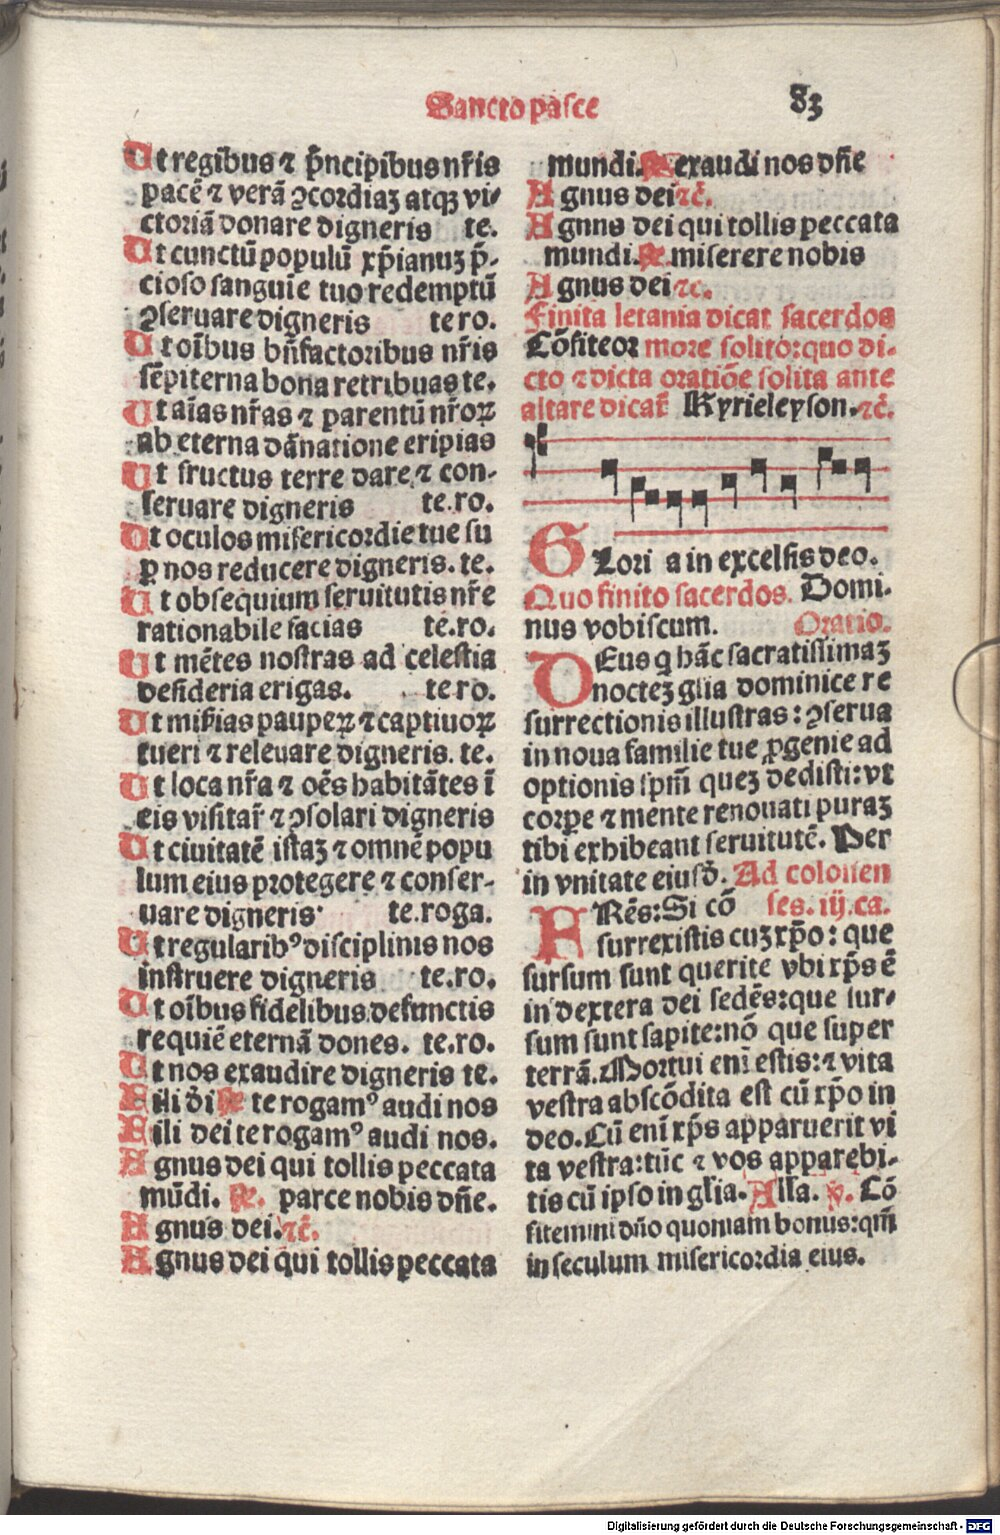 Sancto pasce 83
Ut regibus ⁊ p̄ncipibus nr̄is
pacē ⁊ verā ꝯcordiaꝫ atqꝫ vi⸗
ctoriā donare digneris te.
Ut cunctū populū xp̄ianuꝫ p̄⸗
cioso sanguīe tuo redemptū
ꝯseruare digneris te ro.
Ut oībus bn̄factoribus nr̄is
sēpiterna bona retribuas te.
Ut aīas nr̄as ⁊ parentū nr̄oꝝ
ab eterna dānatione eripias
Ut fructus terre dare ⁊ con⸗
seruare digneris te.ro.
Ut oculos misericordie tue su
ꝑ nos reducere digneris. te.
Ut obsequium seruitutis nr̄e
rationabile facias te.ro.
Ut mētes nostras ad celestia
desideria erigas. te ro.
Ut mis̄ias pauperꝝ ⁊ captiuoꝝ
tueri ⁊ releuare digneris. te.
Ut loca nr̄a ⁊ oēs habitātes ī
eis visitar̄ ⁊ ꝯsolari digneris
Ut ciuitatē istaꝫ ⁊ omnē popu
lum eius protegere ⁊ conser⸗
uare digneris te.roga.
Ut regularibꝰ disciplinis nos
instruere digneris te.ro.
Ut oībus fidelibus defunctis
requiē eternā dones. te.ro.
Ut nos exaudire digneris te.
Fili dei ℟ te rogamꝰ audi nos
Fili dei te rogamꝰ audi nos.
Agnus dei qui tollis peccata
mūdi. ℟. parce nobis dn̄e.
Agnus dei. ⁊c̄.
Agnus dei qui tollis peccata
mundi. ℟ exaudi nos dn̄e
Agnus dei ⁊c̄.
Agnns dei qui tollis peccata
mundi. ℟. miserere nobis
Agnus dei ⁊c.
Finita letania dicat sacerdos
Cōfiteor more solito: quo di⸗
cto ⁊ dicta oratiōe solita ante
altare dicat̄ Kyrieleyson. ⁊c̄.
Glori a in excelsis deo.
Quo finito sacerdos. Domi⸗
nus vobiscum. Oratio.
DEus q hāc sacratissimaꝫ
nocteꝫ gl̄ia dominice re
surrectionis illustras: ꝯserua
in noua familie tue ꝓgenie ad
optionis sp̄m queꝫ dedisti: vt
corpe ⁊ mente renouati puraꝫ
tibi exhibeant seruitutē. Per
in vnitate eiusd̄. Ad colonen
FRēs: Si cō ses. iij. ca.
surrexistis cuꝫ xp̄o: que
sursum sunt querite vbi xp̄s ē
in dextera dei sedēs: que sur⸗
sum sunt sapite: nō que super
terrā. Mortui enī estis: ⁊ vita
vestra abscōdita est cū xp̄o in
deo. Cū enī xp̄s apparuerit vi
ta vestra: tūc ⁊ vos apparebi⸗
tis cū ipso in gl̄ia. Al̄la. ℣. Cō
fitemini dn̄o quoniam bonus: qm̄
in seculum misericordia eius.
Digitalisierung gefördert durch die Deutsche Forschungsgemeinschaft - DFG